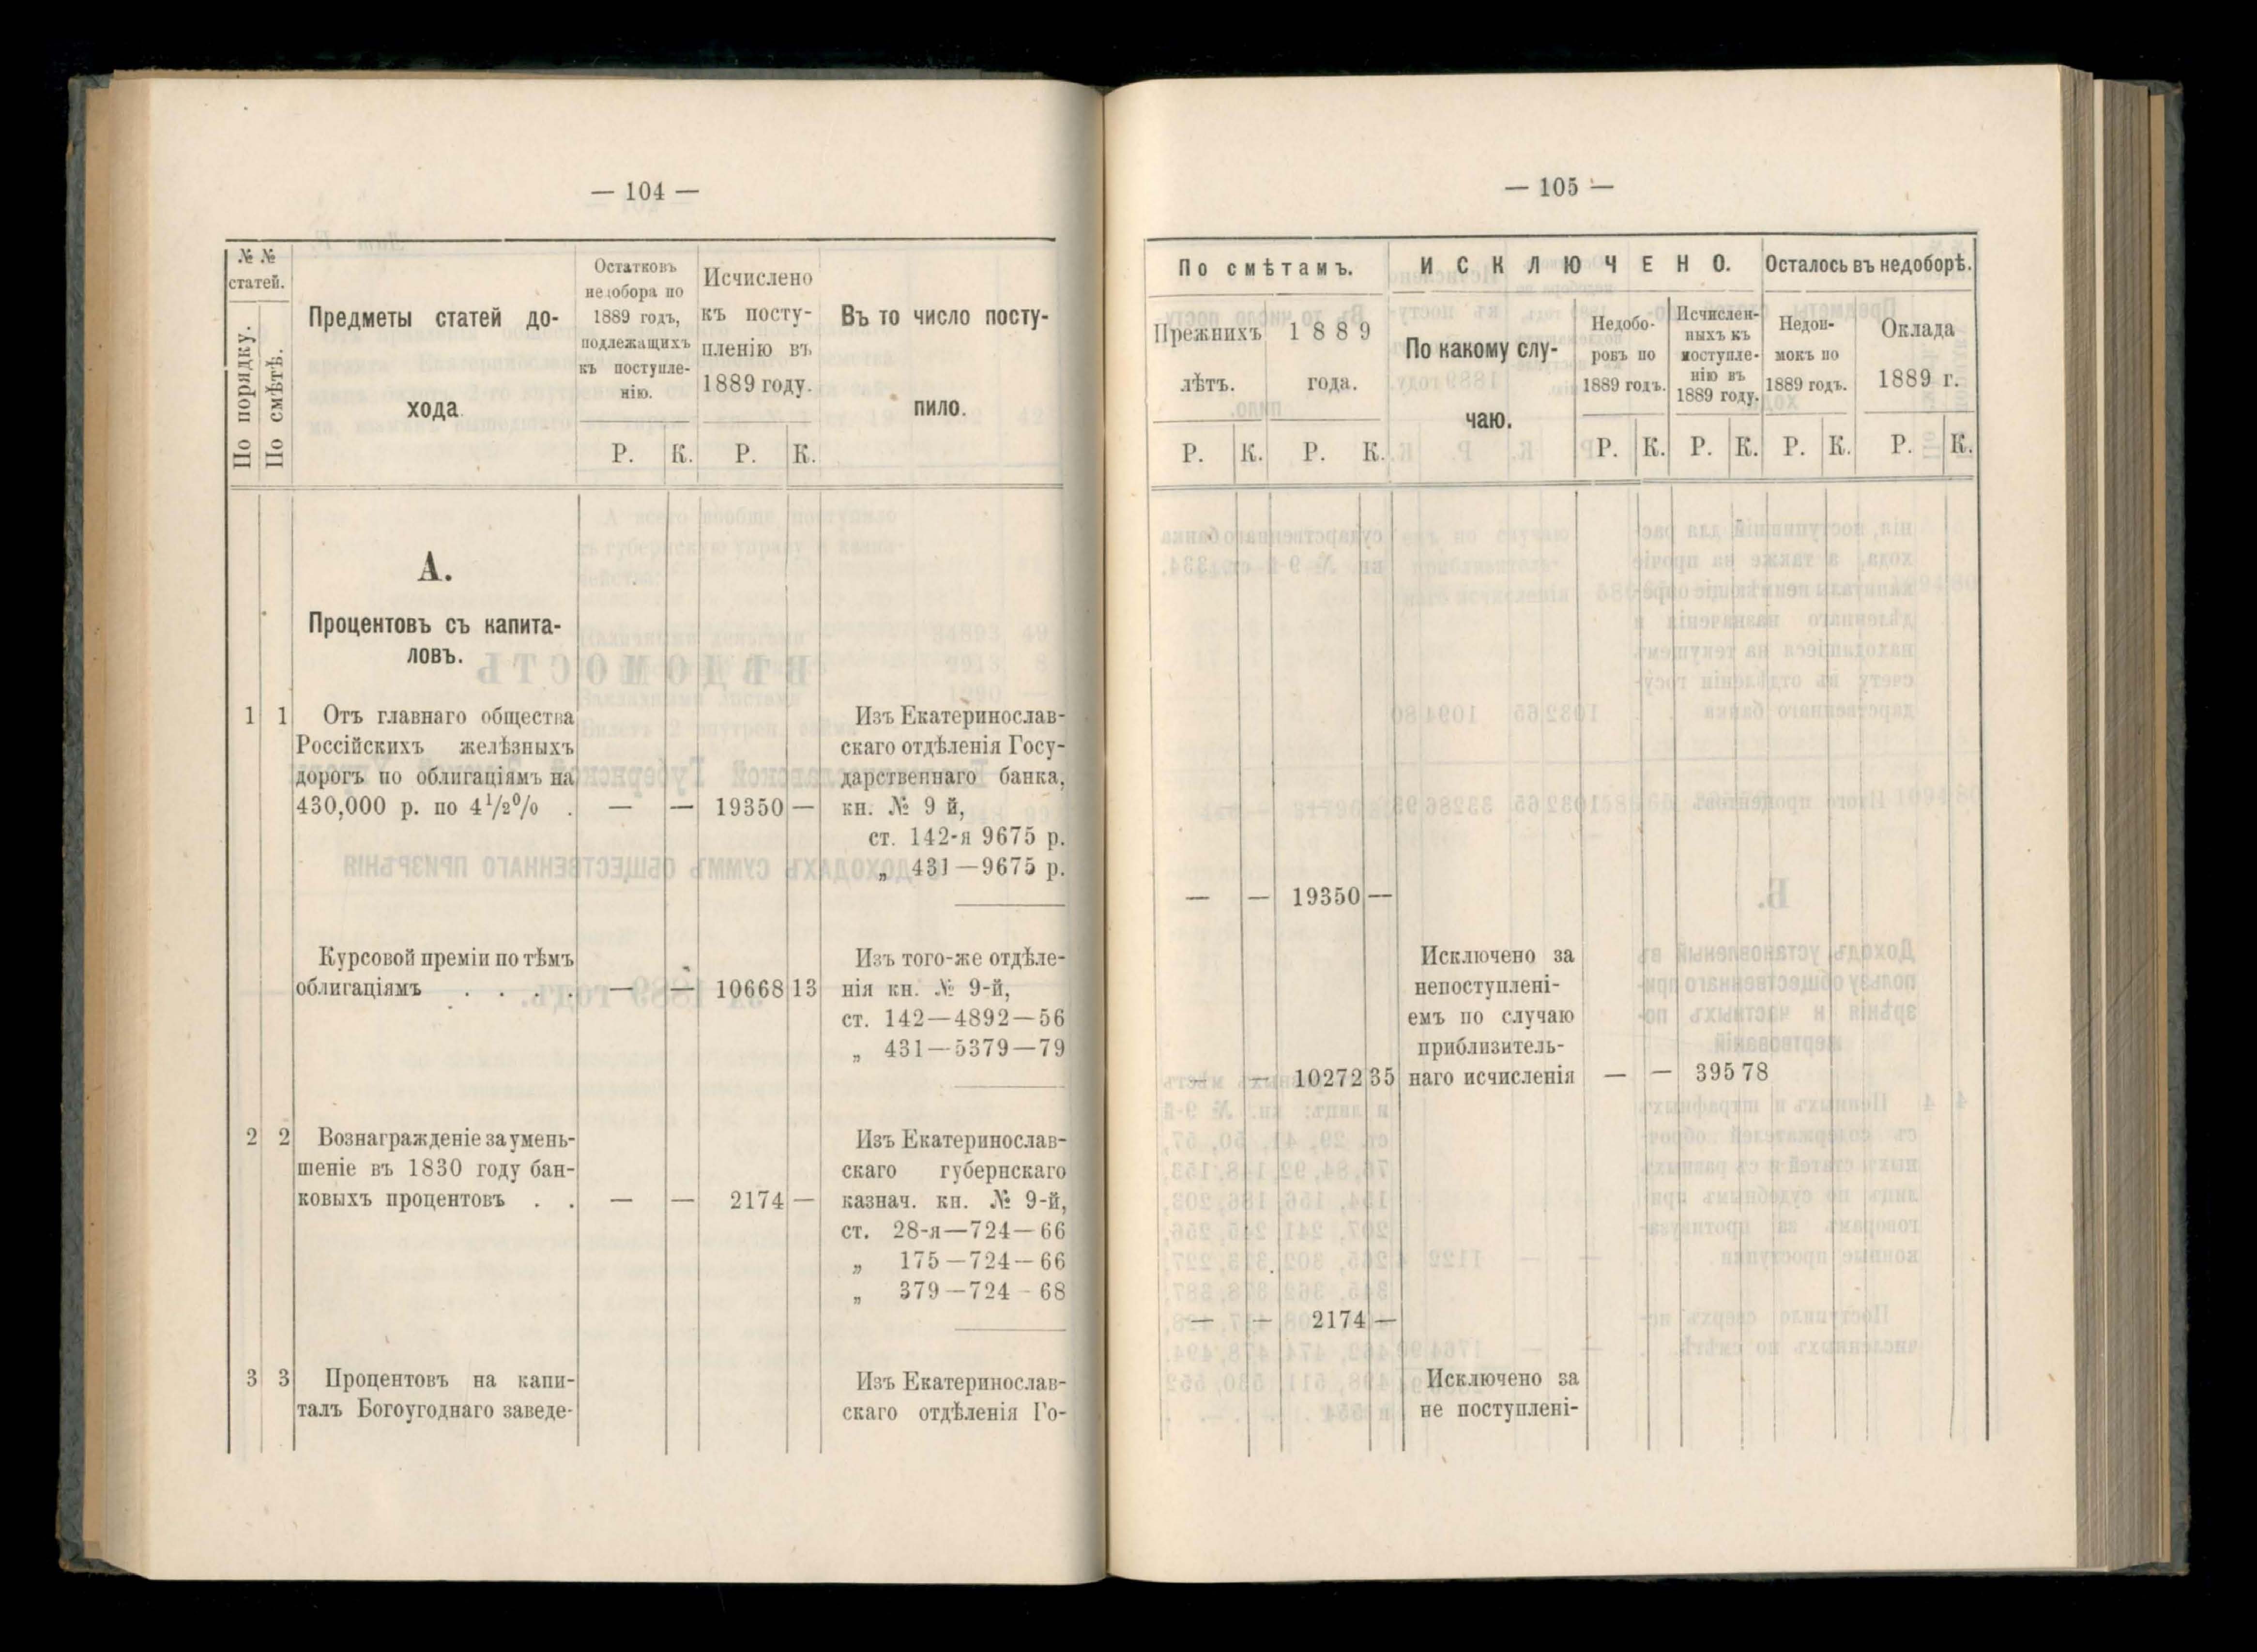 — 104 —
№ №
статей.
По порядку.
По смѣтѣ.
Предметы статей до-
хода
Остатковъ
недобора по
1889 годъ,
подлежащихъ
къ поступле-
нію.
Исчислено
къ посту-
пленію въ
1889 году.
Въ то число посту-
пило.
Р. К. Р. К.
А.
Процентовъ съ капита-
ловъ.
1 1 Отъ главнаго общества
Россійскихъ желѣзныхъ
дорогъ по облигаціямъ на
430,000 р. по 4½% . — — 19350 —
Изъ Екатеринослав-
скаго отдѣленія Госу-
дарственнаго банка,
кн. № 9 й,
ст. 142-я 9675 р.
„ 431—9675 р.
Курсовой преміи по тѣмъ
облигаціямъ . . . . — — 10668 13
Изъ того-же отдѣле-
нія кн. № 9-й,
ст. 142—4892—56
„ 431—5379—79
2 2 Вознагражденіе за умень-
шеніе въ 1830 году бан-
ковыхъ процентовъ . . — — 2174 —
Изъ Екатеринослав-
скаго губернскаго
казнач. кн. № 9-й,
ст. 28-я—724—66
„ 175—724—66
„ 379—724-68
3 3 Процентовъ на капи-
талъ Богоугоднаго заведе-
Изъ Екатеринослав-
скаго отдѣленія Го-
— 105 —
По смѣтамъ.
ИСКЛЮЧЕНО.
Осталось въ недоборѣ.
Прежнихъ
лѣтъ.
1889
года.
По какому слу-
чаю.
Недобо-
ровъ по
1889 годъ.
Исчислен-
ныхъ къ
поступле-
нію въ
1889 году.
Недои-
мокъ по
1889 годъ.
Оклада
1889 г.
Р. К. Р. К. Р. К. Р. К. Р. К. Р. К.
— — 19350 —
Исключено за
непоступлені-
емъ по случаю
приблизитель-
— — 10272 35 наго исчисленія — — 395 78
— — 2174 —
Исключено за
не поступлені-